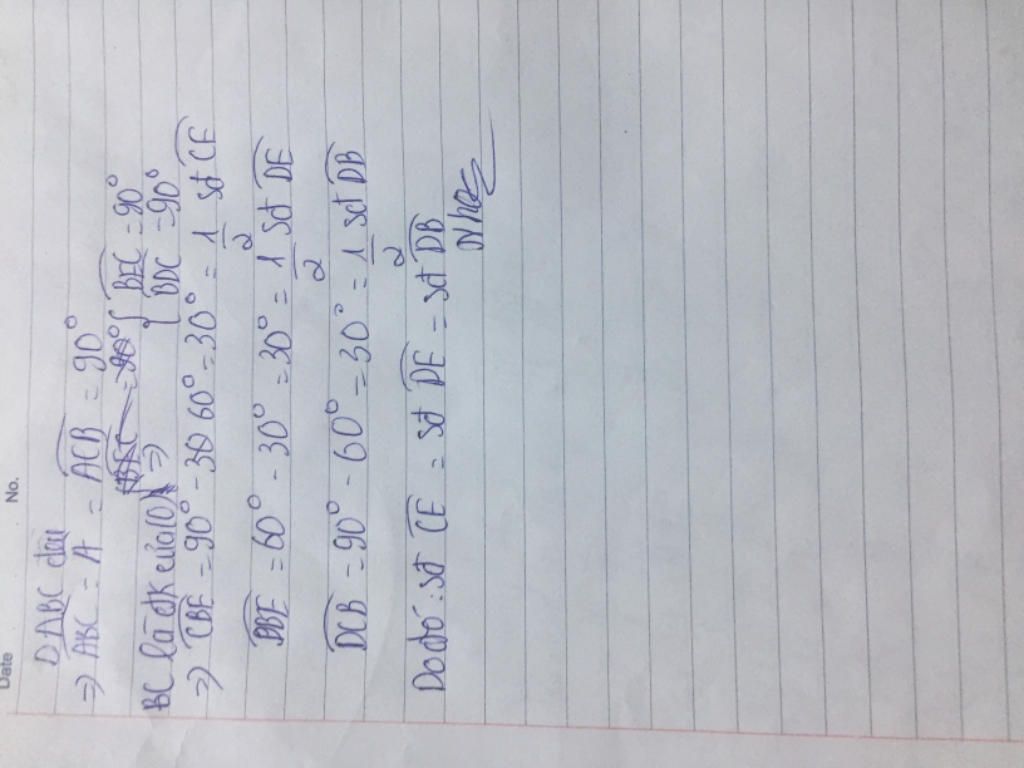 Date No.
DABC đều
⇒ ABC = A = ACB = 90°
BC là đk của (O) ⇒ { BEC = 90°
{ BDC = 90°
⇒ CBE = 90° - 30 60° = 30° = 1/2 sđ CE
DBE = 60° - 30° = 30° = 1/2 sđ DE
DCB = 90° - 60° = 30° = 1/2 sđ DB
Do đó: sđ CE = sđ DE = sđ DB